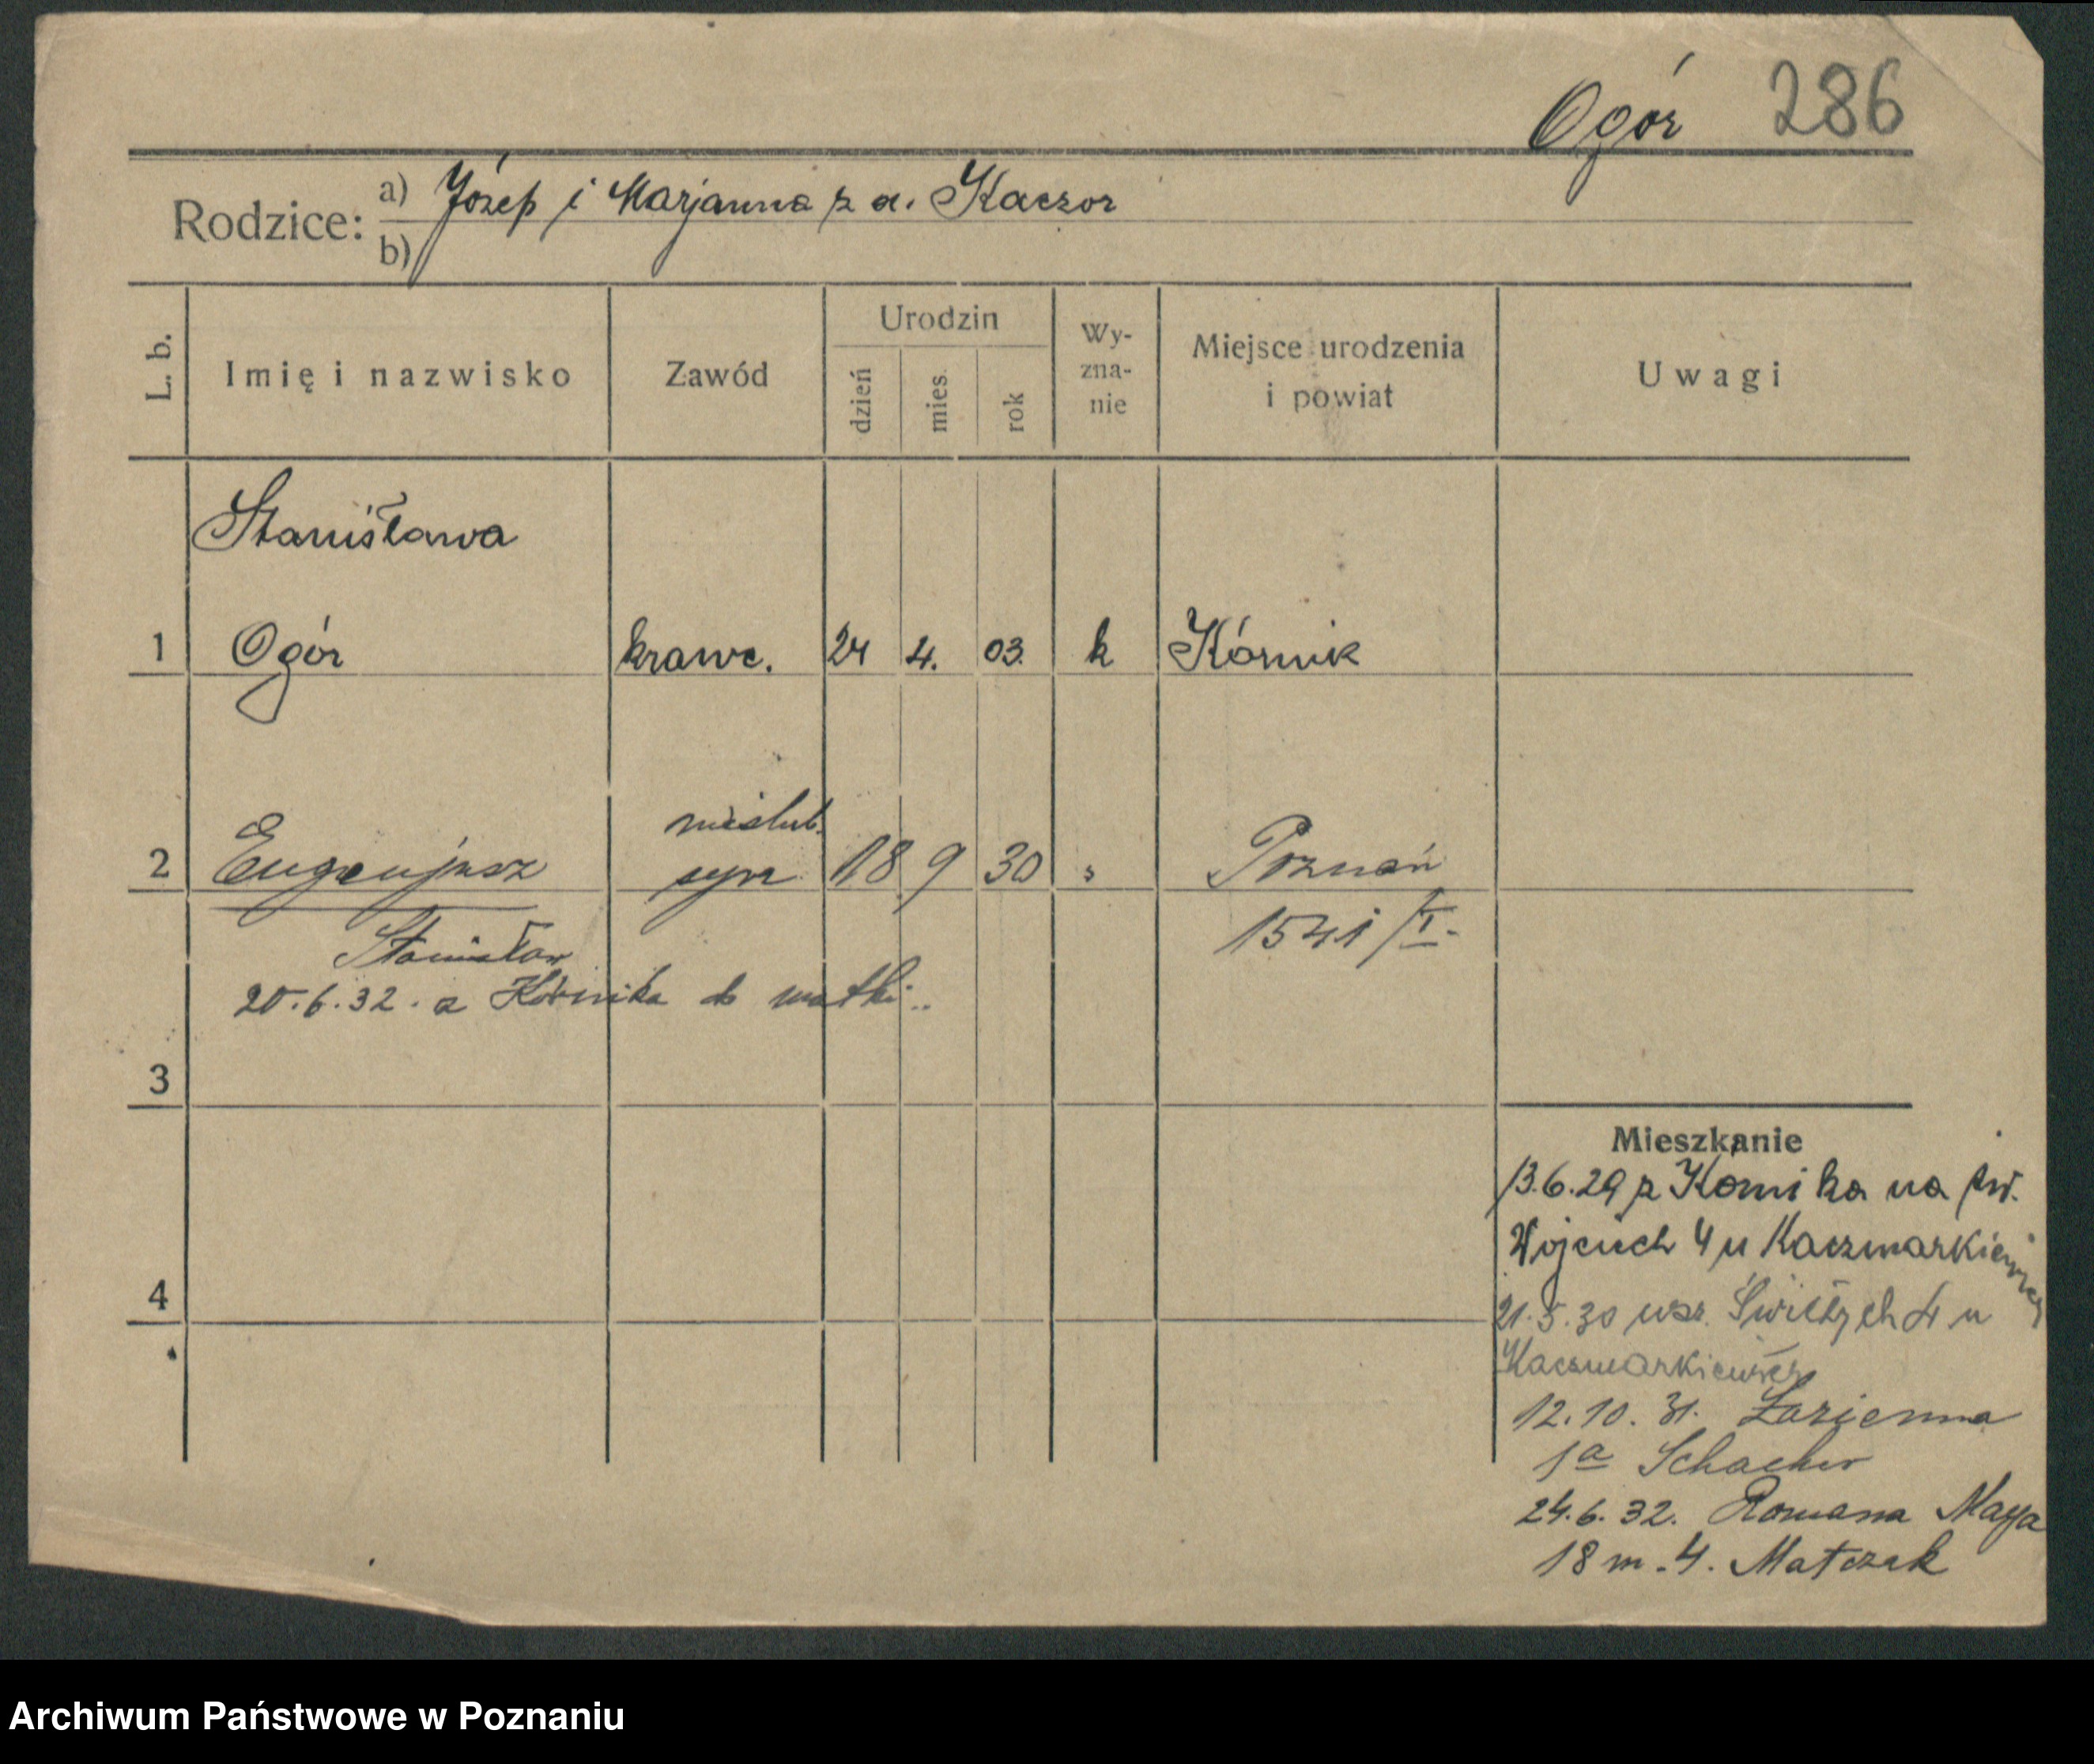 Ogór 286
Rodzice: a) Józef i Marjanna z d. Kaczor
b)
L. b. Imię i nazwisko Zawód Urodzin dzień mies. rok Wy-zna-nie Miejsce urodzenia i powiat Uwagi
Stanisława
1 Ogór krawc. 24 4. 03. k Kórnik
nieślub.
2 Eugenjusz syn 18 9 30 Poznań
Stanisław 1541/I.
20.6.32. z Kórnika do matki..
3
Mieszkanie
13.6.29 z Kórnika na św.
Wojciech 4 u Kaczmarkiewicz
4
21.5.30 wsz. Świętych 4 u
Kaczmarkiewicz
12.10.31. Łazienna
1a
24.6.32. Romana Maya
18 m. 4. Matczak
Archiwum Państwowe w Poznaniu